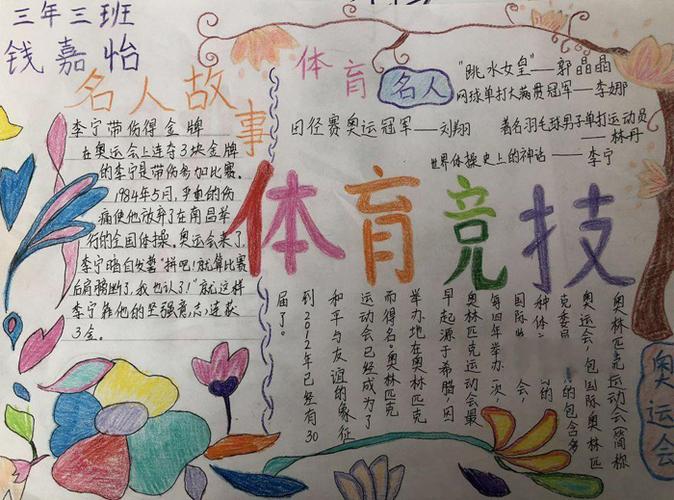 三年三班
钱嘉怡
名人故事
李宁带伤得金牌
在奥运会上连夺3块金牌
的李宁是带伤参加比赛。
1984年5月，严重的伤
病使他放弃了在南昌举
行的全国体操。奥运会来了，
李宁暗自发誓"拼吧！就算比赛
后肩膀断了，我也认了！"就这样
李宁靠他的坚强意志，连获
3金。
体育名人
"跳水女皇"——郭晶晶
网球单打大满贯冠军——李娜
田径赛奥运冠军——刘翔
著名羽毛球男子单打运动员
——林丹
世界体操史上的神话——李宁
体育竞技
奥林匹克运动会（简称
奥运会，包国际奥林匹
克委员的包含多
种体的
国际会，
每四年举办一次，
奥林匹克运动会最
早起源于希腊，因
举办地在奥林匹
而得名。奥林匹克
运动会已经成为了
和平与友谊的象征
到2012年已经有30
届了。
奥运会